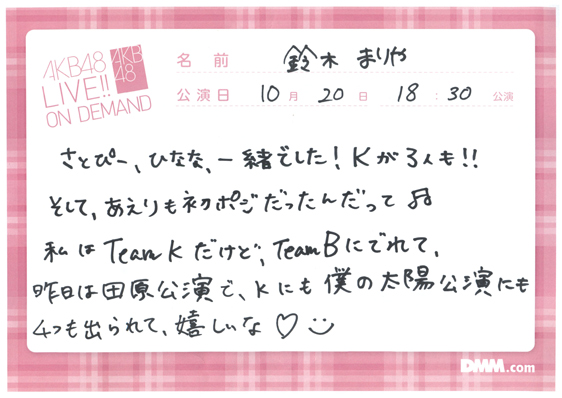 AKB48
LIVE!!
ON DEMAND
AKB
48
名前 鈴木まりや
公演日 10月 20日 18:30 公演
さとぴー、ひなな、一緒でした！Kが3人も!!
そして、あえりも初ポジだったんだって♫
私はTeam Kだけど、Team Bにでれて、
昨日は田原公演で、Kにも僕の太陽公演にも
4つも出られて、嬉しいな♡
DMM.com